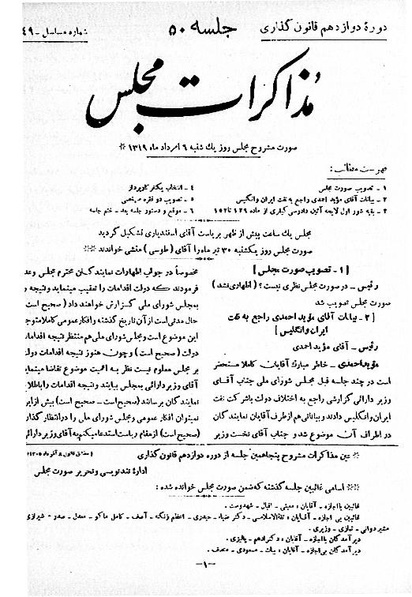 دورهٔ دوازدهم قانون گذاری
جلسه ۵۰
شماره مسلسل - ۴۹
مذاکرات مجلس
صورت مشروح مجلس روز یك شنبه ۶ امرداد ماه ۱۳۱۹
فهرست مطالب:
۱ - تصویب صورت مجلس
۲ - بیانات آقای مؤید احمدی راجع به نفت ایران وانگلیس
۳ - بقیه شور اول لایحه آئین دادرسی کیفری از ماده ۱۲۹ تا ۱۵۲
۴ - انتخاب یکنفر کارپرداز
۵ - تصویب دو فقره مرخصی
۶ - موقع و دستور جلسه بعد - ختم جلسه
مجلس یك ساعت پیش از ظهر بریاست آقای اسفندیاری تشکیل گردید
صورت مجلس روز یکشنبه ۳۰ تیر ماه را آقای (طوسی) منشی خواندند
[۱ - تصویب صورت مجلس]
رئیس - در صورت مجلس نظری نیست؟ (اظهاری نشد)
صورت مجلس تصویب شد
[۲ - بیانات آقای مؤید احمدی راجع به نفت
ایران وانگلیس]
رئیس - آقای مؤید احمدی
مؤید احمدی - خاطر مبارك آقایان کاملا مستحضر
است در چند جلسه قبل مجلس شورای ملی جناب آقای
وزیر دارائی گزارشی راجع به اختلاف دولت باشرکت نفت
ایران وانگلیس دادند وبیاناتی هم از طرف آقایان نمایندگان
در اطراف آن موضوع شد و جناب آقای نخست وزیر
مخصوصاً در جواب اظهارات نمایندگان محترم مجلس وعده
فرمودند که دولت اقدامات را تعقیب مینماید ونتیجه را
بمجلس شورای ملی گزارش خواهند داد (صحیح است)
حال مدتی است از آن تاریخ گذشته وافکار عمومی کاملامتوجه
این موضوع است ومجلس شورای ملی هم منتظر نتیجه اقدامات
دولت (صحیح است) و چون هنوز نتیجه اقدامات دولت
بر مجلس معلوم نیست نظر به اهمیت موضوع تقاضا مینمایم
آقای وزیر دارائی بمجلس بیایند ونتیجه اقدامات را باطلاع
نمایندگان برسانند (صحیح است - صحیح است) بیش از این
نمیتوان افکار عمومی ومجلس شورای ملی را درانتظار گذارد
(صحیح است) از مقام ریاست استدعا میکنم به آقای وزیر دارائی
عین مذاکرات مشروح پنجاهمین جلسه از دوره دوازدهم قانون گذاری
اداره تندنویسی وتحریر صورت مجلس
اسامی غائبین جلسه گذشته که ضمن صورت مجلس خوانده شده:
غائبین با اجازه - آقایان:
غائبین بی اجازه - آقایان:
دیر آمدگان با اجازه - آقایان:
دیر آمدگان بی اجازه - آقایان: - مسعودی -
-۱-